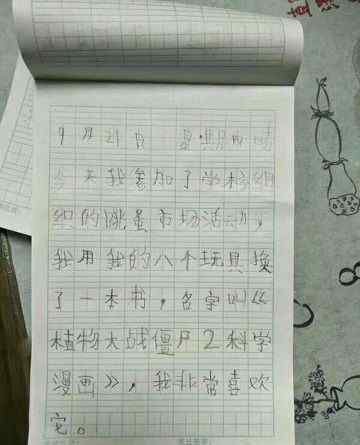 9月21日 星期四 晴
今天我参加了学校组
织的跳蚤市场活动，
我用我的八个玩具换
了一本书，名字叫《
植物大战僵尸2科学
漫画》，我非常喜欢
它。